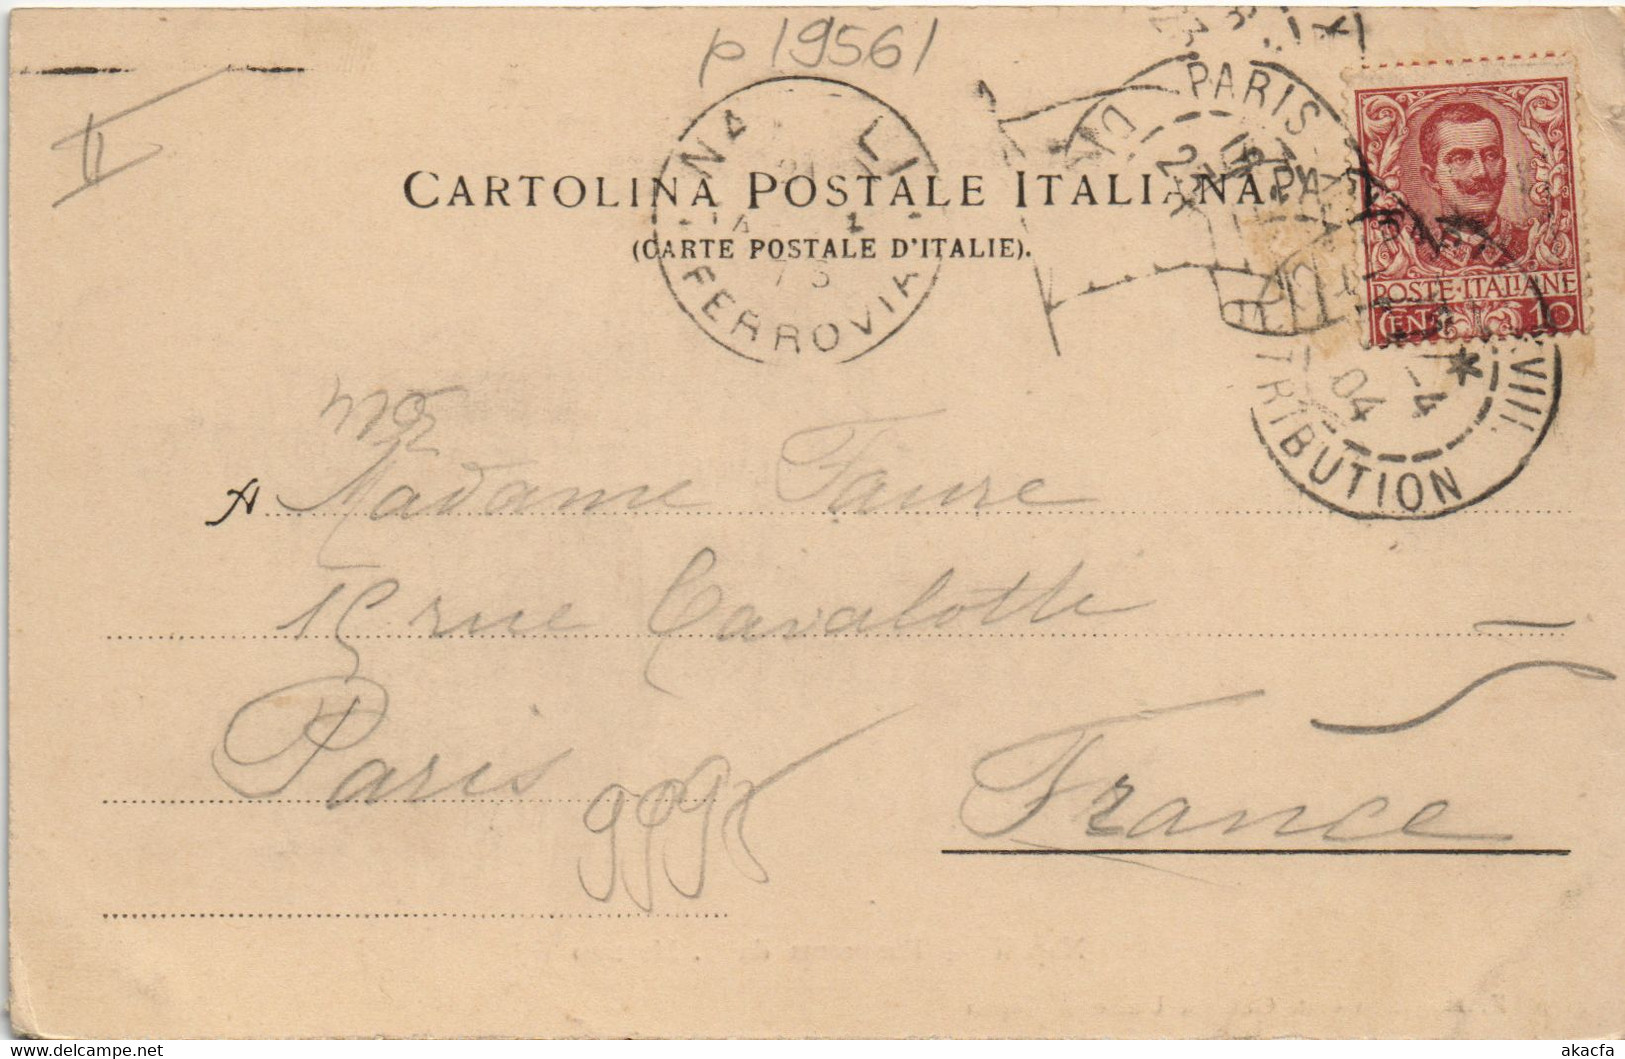 p 19561
II
CARTOLINA POSTALE ITALIANA
(CARTE POSTALE D'ITALIE).
NA LI
FERROVIA
PARIS
DISTRIBUTION
XVIII
-4
04
POSTE·ITALIANE
CENT. 10
A Madame Faure
15 rue Cavalotti
Paris
France
akacfa